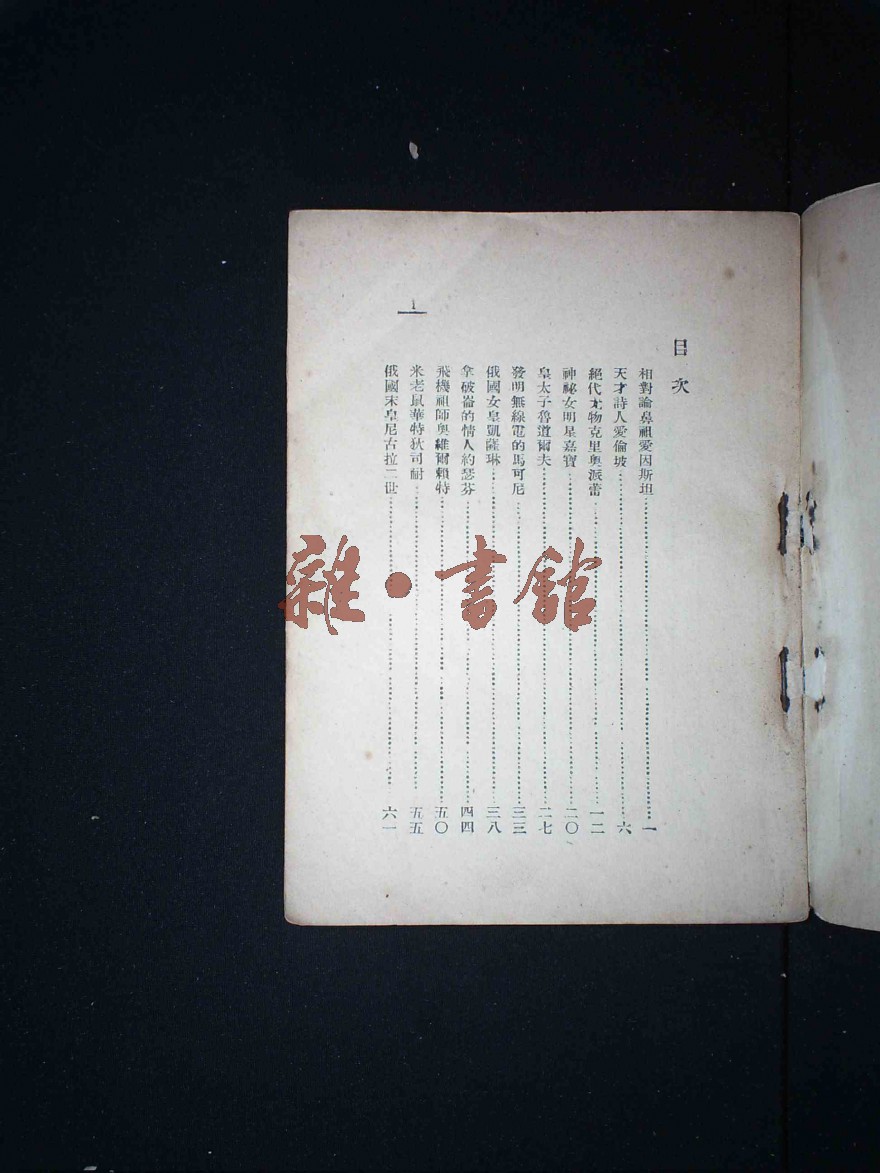 目次
相對論鼻祖愛因斯坦……一
天才詩人愛倫坡……六
絕代尤物克里奧派蕾……一二
神祕女明星嘉寶……二〇
皇太子魯道爾夫……二七
發明無線電的馬可尼……三三
俄國女皇凱薩琳……三八
拿破崙的情人約瑟芬……四四
飛機祖師奧維爾賴特……五〇
米老鼠華特狄司耐……五五
俄國末皇尼古拉二世……六一
雜·書館